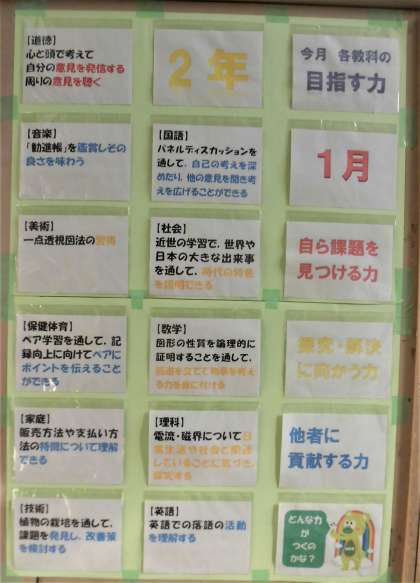 【道徳】
心と頭で考えて
自分の意見を発信する
周りの意見を聴く
2年
今月 各教科の
目指す力
【音楽】
「勧進帳」を鑑賞しその
良さを味わう
【国語】
パネルディスカッションを
通して、自己の考えを深
めたり、他の意見を聞き考
えを広げることができる
1月
【美術】
一点透視図法の習得
【社会】
近世の学習で、世界や
日本の大きな出来事
を通して、時代の特色
を説明できる
自ら課題を
見つける力
【保健体育】
ペア学習を通して、記
録向上に向けてペアに
ポイントを伝えること
ができる
【数学】
図形の性質を論理的に
証明することを通して、
筋道を立てて物事を考え
る力を身に付ける
探究・解決
に向かう力
【家庭】
販売方法や支払い方
法の特徴について理解
できる
【理科】
電流・磁界について日
常生活や社会と関連
していることに気づき、
探究する
他者に
貢献する力
【技術】
植物の栽培を通して、
課題を発見し、改善策
を検討する
【英語】
英語での落語の活動
を理解する
どんな力
が
つくの
かな?